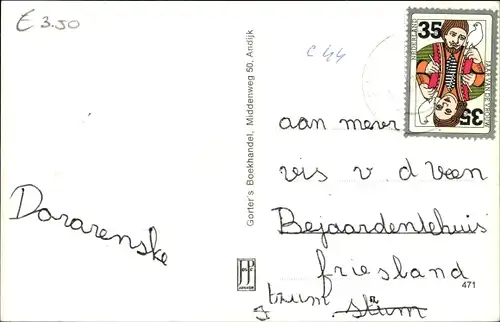 € 3.50
c 44
35
NEDERLAND
35
Gorter's Boekhandel, Middenweg 50, Andijk
aan mevr
vis v. d Veen
Bejaardentehuis
friesland
471
Dararenske